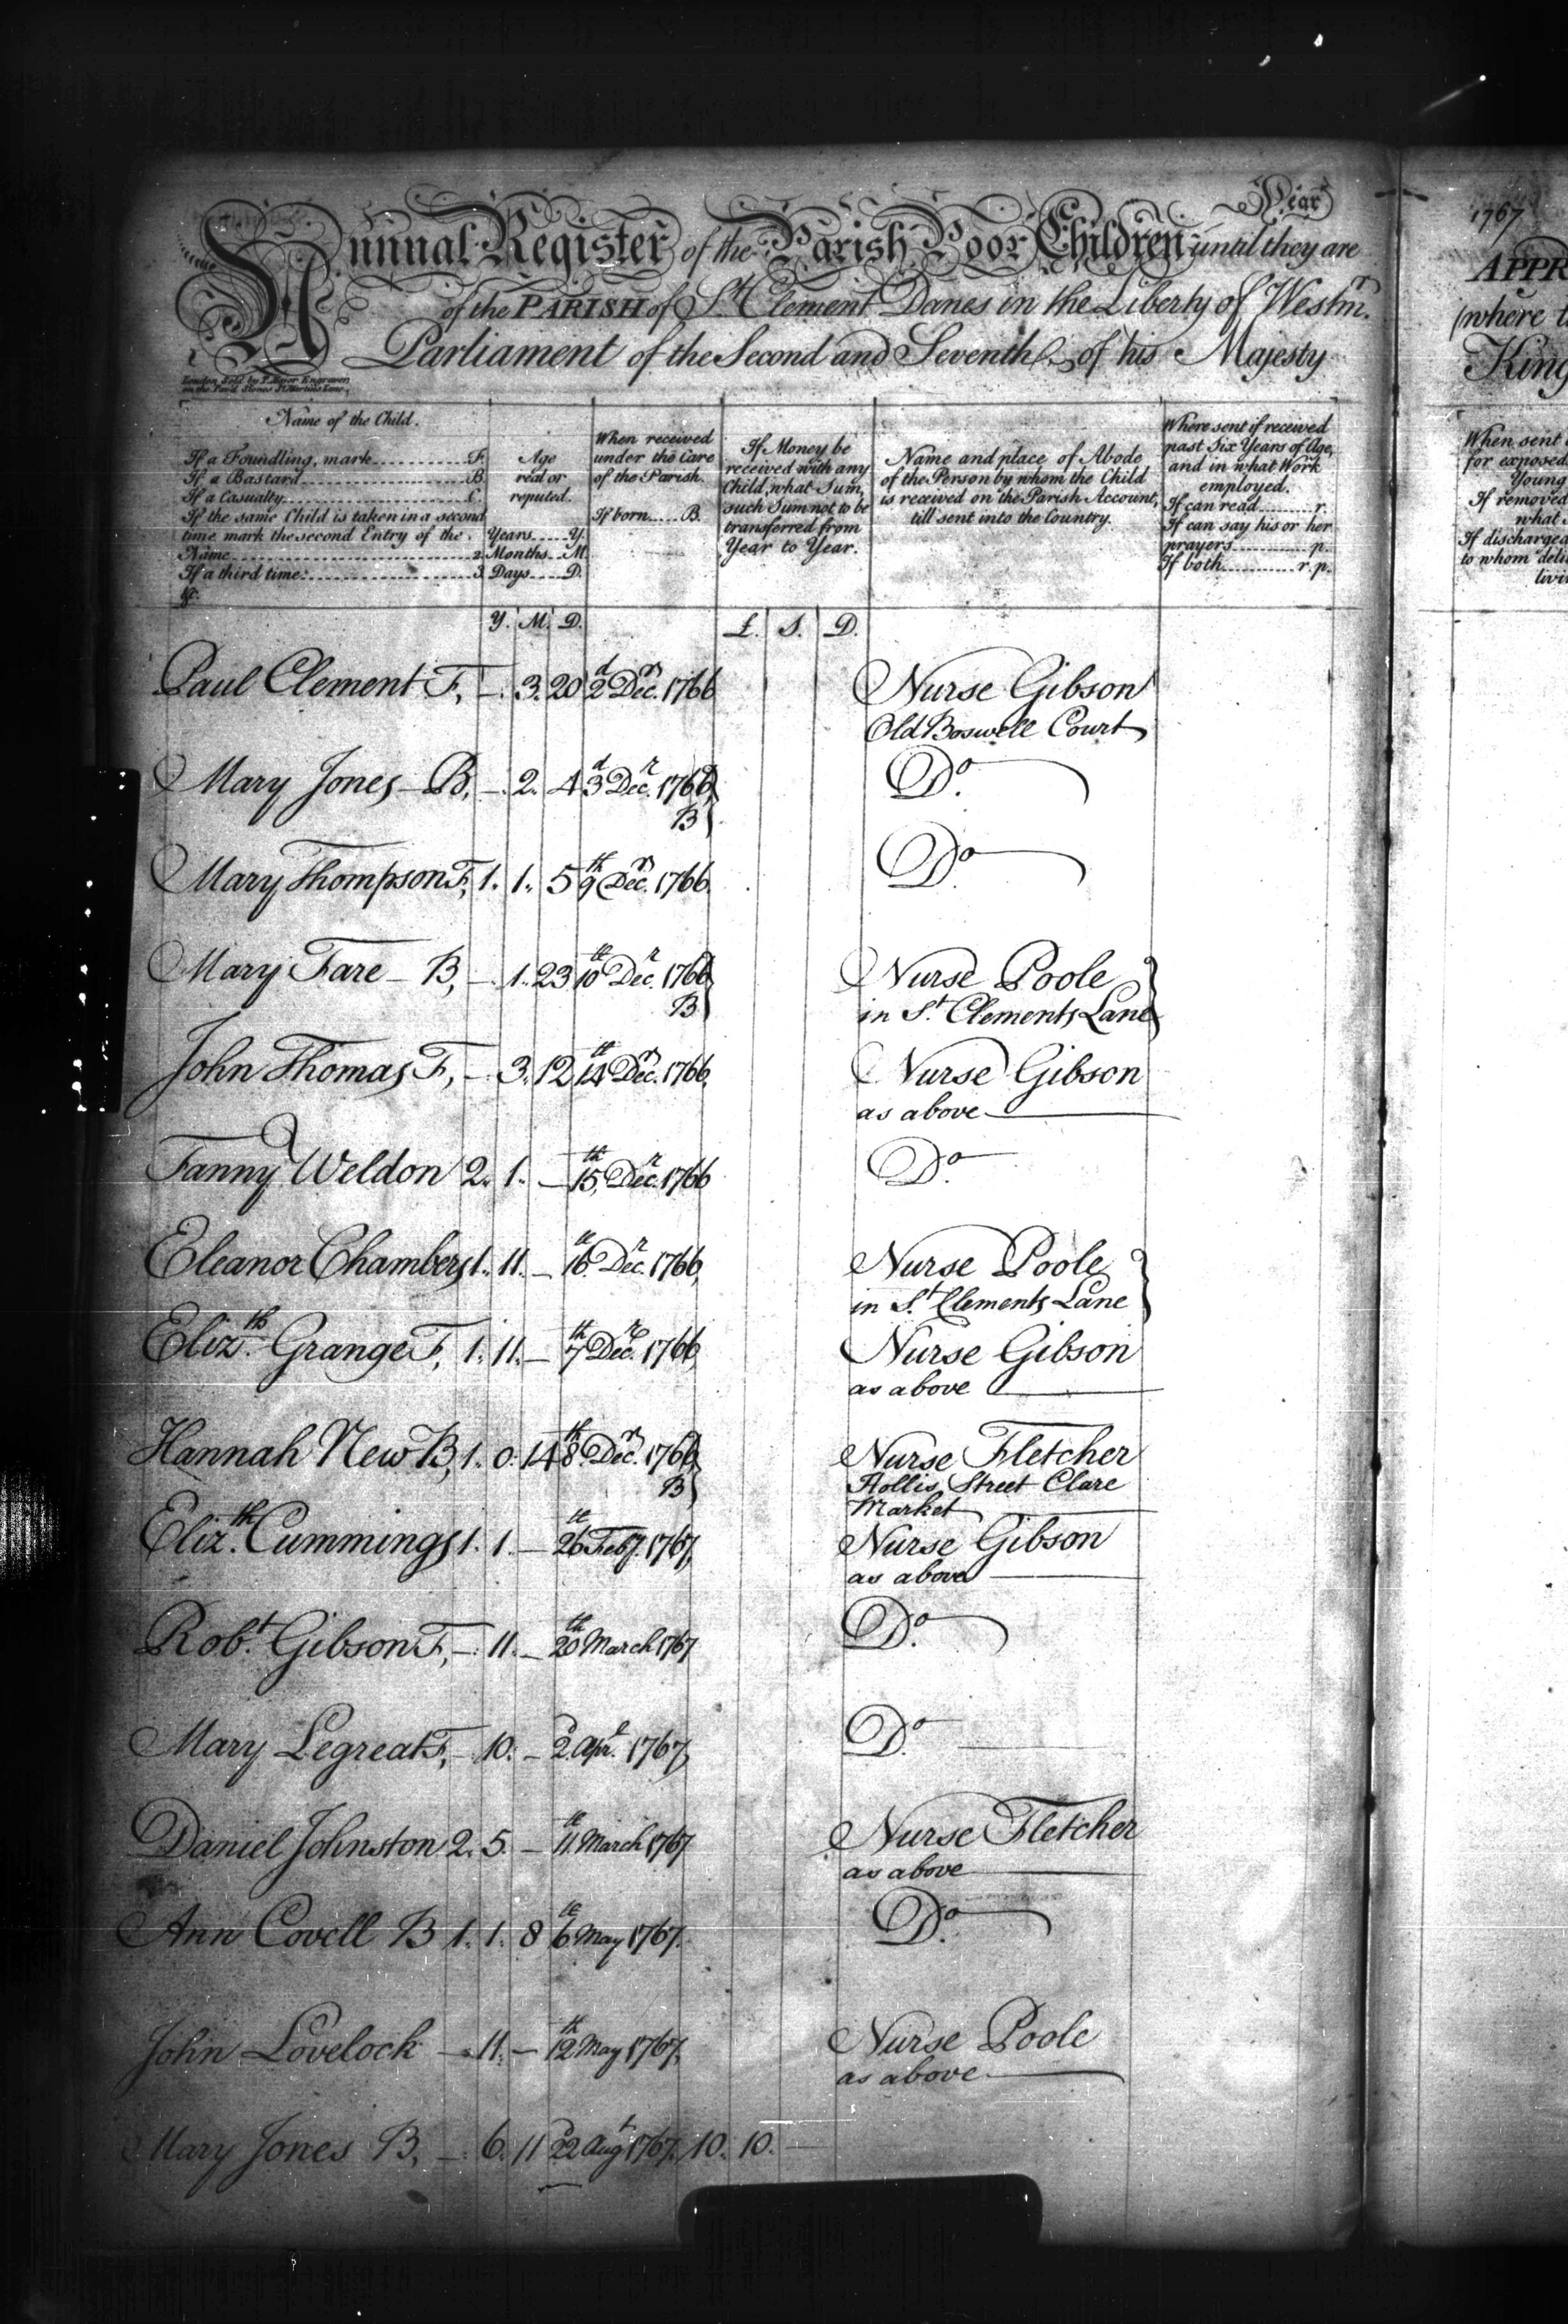 Year
Annual Register of the Parish Poor Children until they are
of the PARISH of St. Clement Danes in the Liberty of Westmr.
Parliament of the Second and Seventh of his Majesty
London Sold by
Name of the Child.
If a Foundling, mark F.
If a Bastard B.
If a Casualty C.
If the same Child is taken in a second
time mark the second Entry of the
Name 2.
If a third time 3.
&c.
Age
real or
reputed.
Years Y.
Months M.
Days D.
When received
under the Care
of the Parish.
If born B.
If Money be
received with any
Child, what Sum,
such Sum not to be
transferred from
Year to Year.
Name and place of Abode
of the Person by whom the Child
is received on the Parish Account,
till sent into the Country.
Where sent if received
past Six Years of Age,
and in what Work
employed.
If can read r.
If can say his or her
prayers p.
If both r. p.
Y. M. D. £. S. D.
Paul Clement F, — 3. 20 2d Decr. 1766 Nurse Gibson
Old Boswell Court
Mary Jones — B, — 2. 4 3d Decr. 1766 Do.
B
Mary Thompson F, 1. 1. 5 9th Decr. 1766 Do.
Mary Fare — B, — 1. 23 10th Decr. 1766 Nurse Poole
B in St. Clements Lane
John Thomas F, — 3. 12 14th Decr. 1766 Nurse Gibson
as above
Fanny Weldon 2. 1. — 15th Decr. 1766 Do.
Eleanor Chambers 1. 11. — 16th Decr. 1766 Nurse Poole
in St. Clements Lane
Elizth. Grange F, 1. 11. — 7th Decr. 1766 Nurse Gibson
as above
Hannah New B, 1. 0. 14 8th Decr. 1766 Nurse Fletcher
B Hollis Street Clare
Market
Elizth. Cummings 1. 1. — 26th Feby. 1767 Nurse Gibson
as above
Robt. Gibson F, — 11. — 20th March 1767 Do.
Mary Legreat F, — 10. — 2d Aprl. 1767 Do.
Daniel Johnston 2. 5. — 11th March 1767 Nurse Fletcher
as above
Ann Covell B 1. 1. 8 6th May 1767 Do.
John Lovelock — 11. — 12th May 1767 Nurse Poole
as above
Mary Jones B, — 6. 11 22d Augt 1767 10. 10. —
1767
APPR
(where t
King
When sent
for exposed
Young
If removed
what
If discharged
to whom deli
livi